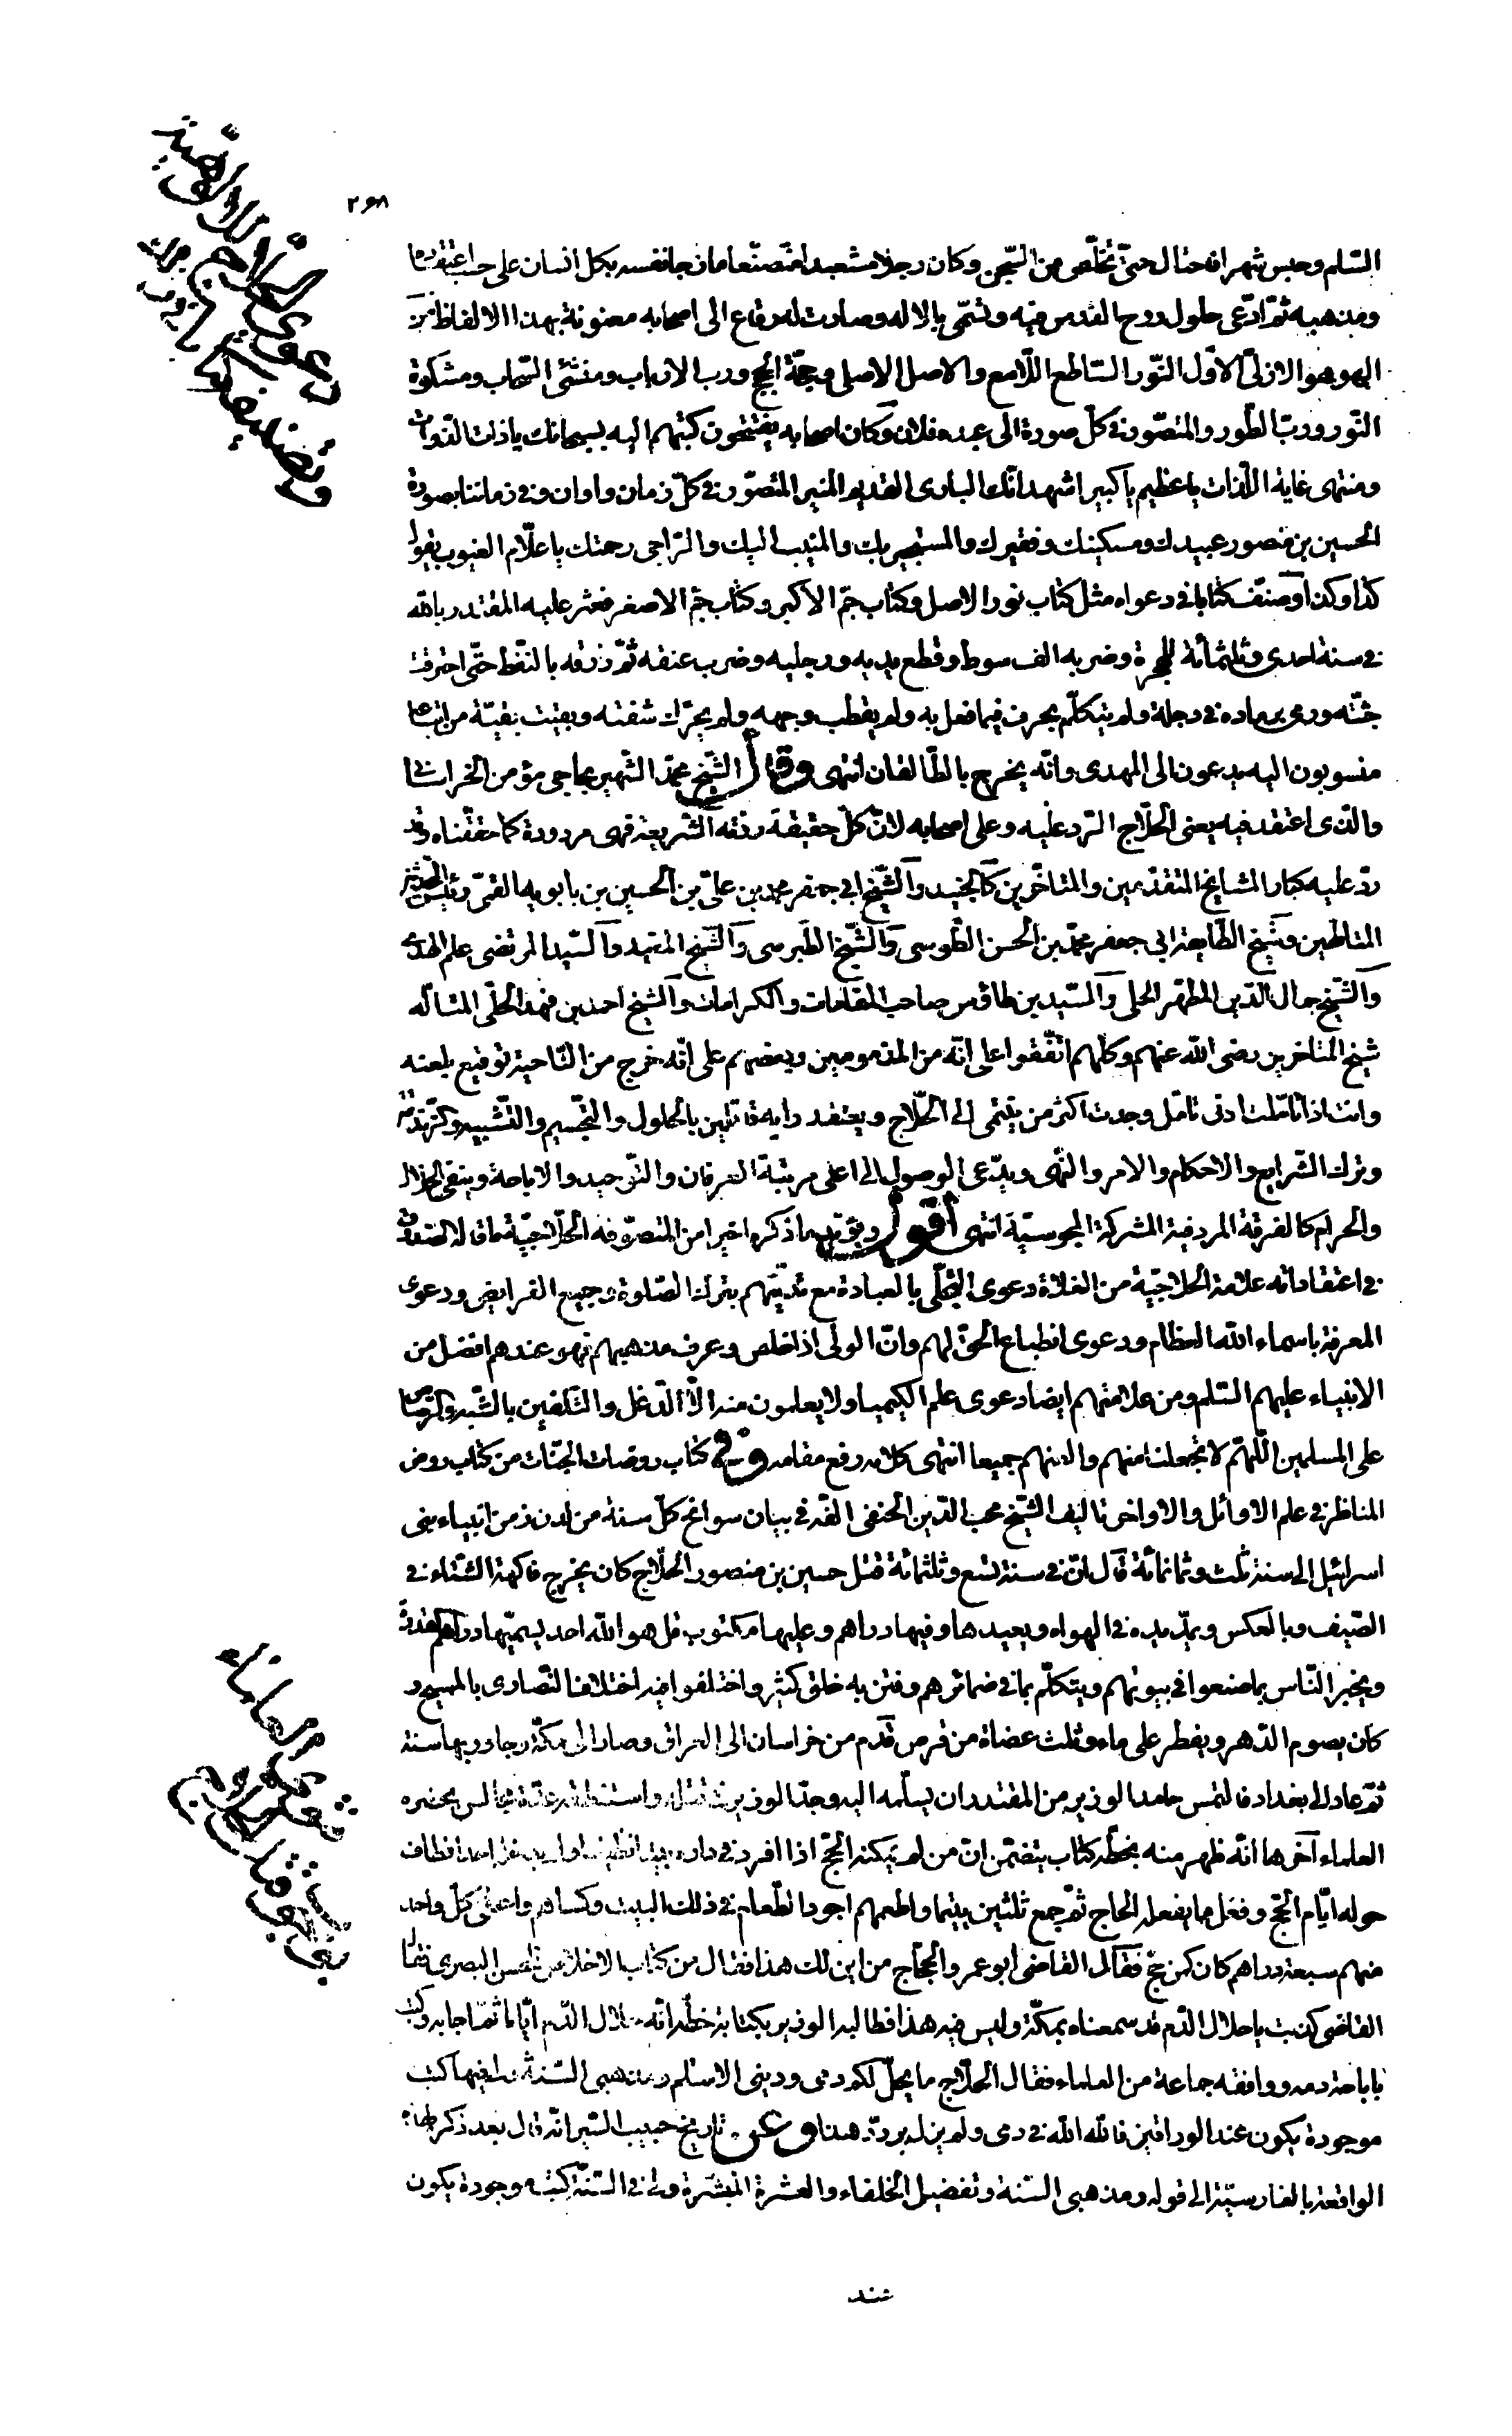 ٢٩٨
دعوى الحلّاج الالوهيّة
وتصنيفه كتابا
السّلم وحبس شهرا فاحتال حتّى تخلّص من السّجن وكان رجلا مشعبدا متصنّعا مازجا نفسه بكل انسان على حسب اعتقاده
ومذهبه ثمّ ادّعى حلول روح القدس فيه وتسمّى بالاله وصارت له رقاع الى اصحابه معنونة بهذا الالفاظ من
الهو هو الازلىّ الاوّل النّور السّاطع اللّامع والاصل الاصلى وحجّة الحجج وربّ الارباب ومنشئ السّحاب ومشكوة
النّور وربّ الطّور والمتصّور فى كلّ صورة الى عبده فلان وكان اصحابه يفتتحون كتبهم اليه بسبحانك ياذات الذّوات
ومنتهى غاية اللّذات ياعظيم ياكبير اشهد انّك البارى القديم المنير المتصّور فى كلّ زمان واوان وفى زماننا بصورة
الحسين بن منصور عبيدك ومسكينك وفقيرك والمستجير بك والمنيب اليك والرّاجى رحمتك ياعلّام الغيوب يقول
كذا وكذا وصنّف كتابا فى دعواه مثل كتاب نور الاصل وكتاب جمّ الاكبر وكتاب جمّ الاصغر فعثر عليه المقتدر بالله
فى سنة احدى وثلثمائة للهجرة وضربه الف سوط وقطع يديه ورجليه وضرب عنقه ثمّ زرقه بالنّفط حتّى احترقت
جثّته ورمى برماده فى دجلة ولم يتكلّم بحرف فيما فعل به ولم يقطب وجهه ولم يحرّك شفته وبقيت بقيّة من اتباعه
منسوبون اليه يدعون الى المهدى وانّه يخرج بالطّالقان انتهى وقال الشّيخ محمّد الشّهير بحاجى مؤمن الخراسانى
والّذى اعتقد فيه يعنى الحلّاج الرّد عليه وعلى اصحابه لانّ كلّ حقيقة ردّته الشّريعة فهى مردودة كما حقّقناه وقد
ردّ عليه كبار المشايخ المتقدّمين والمتاخّرين كالجنيد والشّيخ ابى جعفر محمد بن علىّ بن الحسين بن بابويه القمّى رئيس المحدّثين
المتالّهين وشيخ الطّايفة ابى جعفر محمّد بن الحسن الطّوسى والشّيخ الطبرسى والشّيخ المفيد والسّيد المرتضى علم الهدى
والشّيخ جمال الدّين المطهّر الحلى والسّيد بن طاوس صاحب المقامات والكرامات والشيخ احمد بن فهد الحلّى المتالّه
شيخ المتاخرين رضى الله عنهم وكلّهم اتّفقوا على انّه من المذمومين وبعضهم على انّه خرج من النّاحية توقيع بلعنه
وانت اذا تاملت ادنى تامّل وجدت اكثر من ينتمى الى الحلّاج ويعتقد رايه قائلين بالحلول والتجّسيم والتّشبيه
وترك الشّرايع والاحكام والامر والنّهى ويدّعى الوصول الى اعلى مرتبة العرفان والتّوحيد والاباحة وينفى الحلال
والحرام كالفرقة المردفية المشركة المجوسيّة انتهى اقول ويؤيّد ما ذكره اخيرا من المتصوّفه الحلّاجيّة ما قاله الصّدوق
فى اعتقاداته علامة الحلاجيّة من الغلاة دعوى التّحلّى بالعبادة مع تديّنهم بترك الصّلوة وجميع الفرايض ودعوى
المعرفة باسماء الله العظام ودعوى انطباع الحقّ لهم وانّ الولى اذا خلص وعرف مذهبهم فهو عندهم افضل من
الانبياء عليهم السّلم ومن علامتهم ايضا دعوى علم الكيميا ولا يعلمون منه الّا الدّغل والتلفيق بالشّبه والرّصاص
على المسلمين اللّهمّ لا تجعلنا منهم والعنهم جميعا انتهى كلامه رفع مقامه وفى كتاب روضات الجنّات من كتاب روض
المناظر فى علم الاوائل والاواخر تاليف الشّيخ محبّ الدّين الحنفى الفه فى بيان سوانح كلّ سنة من لدن زمن انبياء بنى
اسرائيل الى سنة ثلث وثمانمائة قال انّ فى سنة تسع وثلثمائة قتل حسين بن منصور الحلّاج كان يخرج فاكهة الشّتاء فى
الصّيف وبالعكس ويمدّ يده فى الهواء ويعيدها وفيها دراهم وعليها مكتوب قل هو الله احد يسمّيها دراهم القدرة
ويخبر النّاس بما صنعوا فى بيوتهم ويتكلّم بما فى ضمائرهم وفتن به خلق كثير واختلفوا فيه اختلاف النّصارى بالمسيح و
كان يصوم الدّهر ويفطر على ماء وثلث عضاة من قرص قدم من خراسان الى العراق وصار الى مكّة وجاور بها سنة
ثمّ عاد الى بغداد فالتمس حامد الوزير من المقتدر ان يسلّمه اليه وجدّ الوزير فى قتله واستنطقه عدّة مجالس بحضرة
العلماء آخرها انّه ظهر منه بخطّه كتاب يتضمّن انّ من لم يمكنه الحجّ اذا افرد فى داره بيتا نظيفا ولم يدخله احد فطاف
حوله ايّام الحجّ وفعل ما يفعل الحاج ثمّ جمع ثلثين يتيما واطعمهم اجود الطّعام فى ذلك البيت وكساهم واعطى كلّ واحد
منهم سبعة دراهم كان كمن حجّ فقال القاضى ابو عمرو الحجّاج من اين لك هذا فقال من كتاب الاخلاص للحسن البصرى فقال
القاضى كذبت ياحلال الدّم قد سمعناه بمكّة وليس فيه هذا فطالبه الوزير بكتابة خطّه انّه حلال الدّم ايّاما ثمّ اجابه وكتب
باباحة دمه ووافقه جماعة من العلماء فقال الحلّاج ما يحلّ لكم دمى ودينى الاسلم ومذهبى السّنة ولى فيها كتب
موجودة يكون عند الورّاقين فالله الله فى دمى ولم يزل يردّد هذا وعن تاريخ حبيب السّير انّه قال بعد ذكر هذه
الواقعة بالفارسيّة الى قوله ومذهبى السّنة وتفضيل الخلفاء والعشرة المبشّرة ولى فى السّنة كتب موجودة يكون
فتوى العلماء
بوجوب قتل
عند